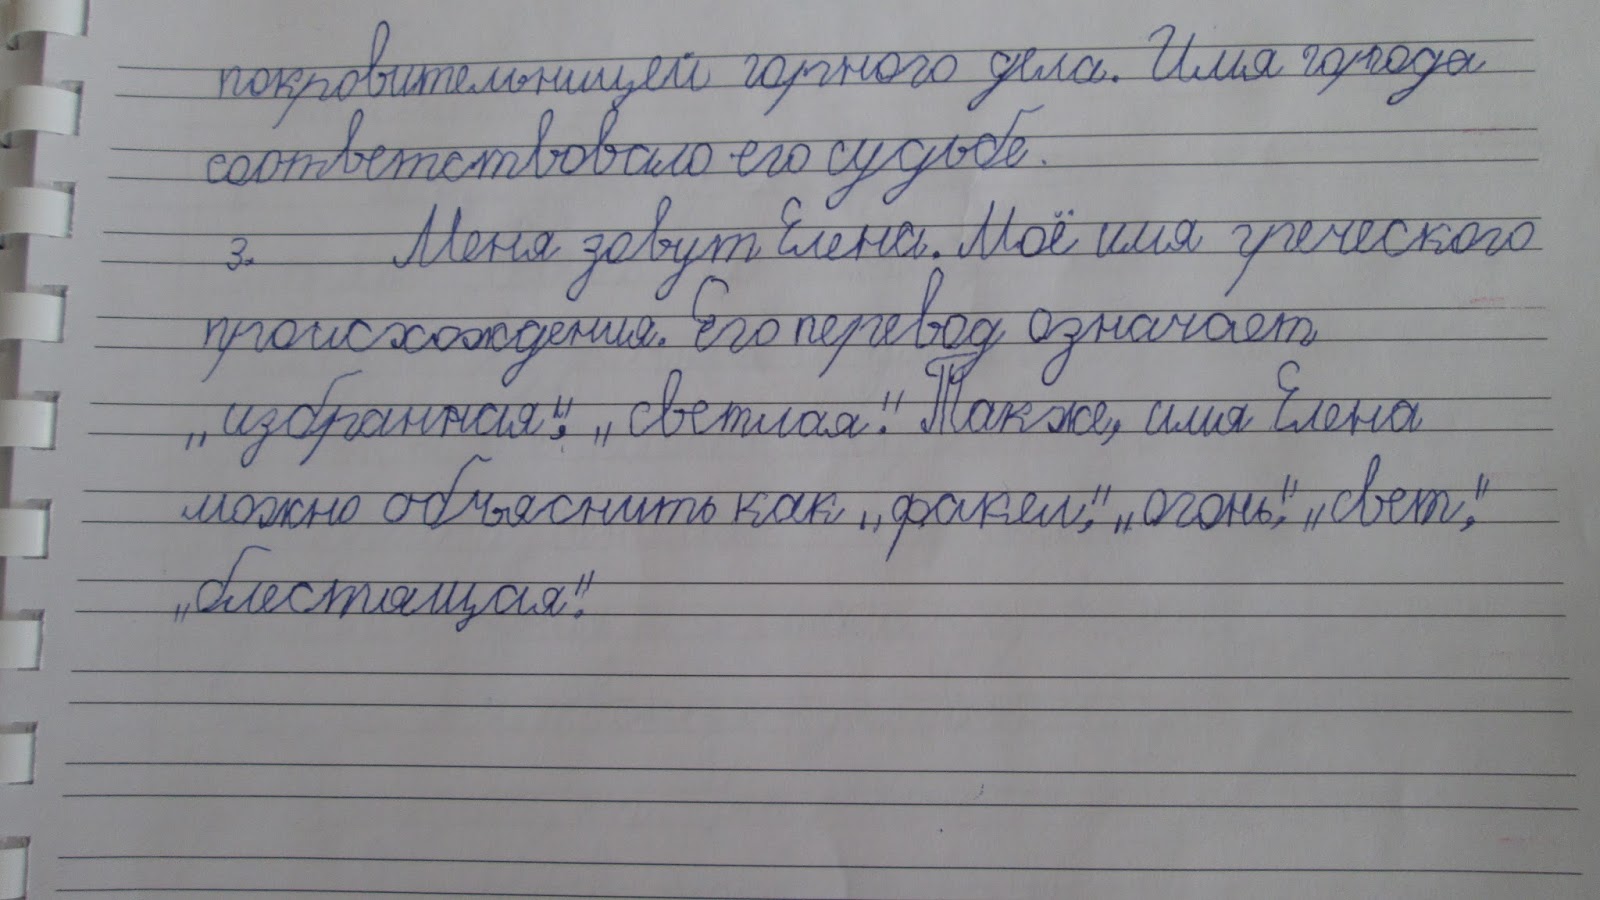 покровительницей горного дела. Имя города
соответствовало его судьбе.
3. Меня зовут Елена. Моё имя греческого
происхождения. Его перевод означает
„избранная", „светлая". Также, имя Елена
можно объяснить как „факел", „огонь", „свет",
„блестящая".